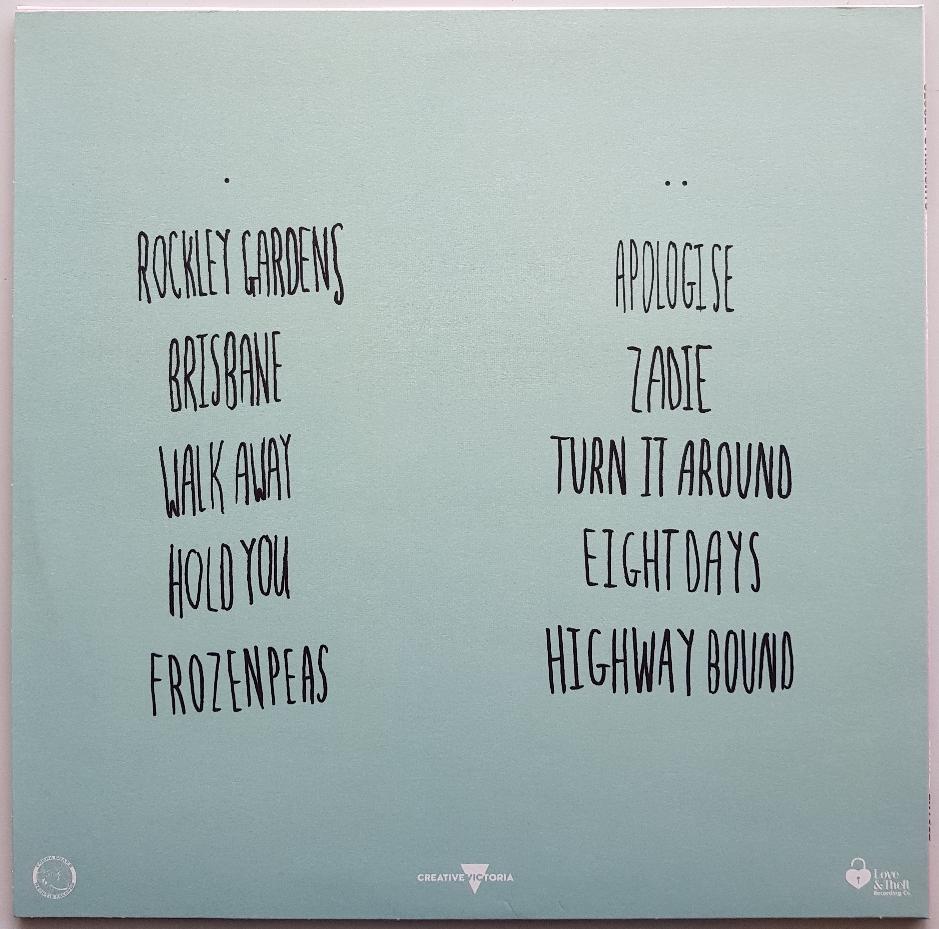 ROCKLEY GARDENS
BRISBANE
WALK AWAY
HOLD YOU
FROZEN PEAS
APOLOGISE
ZADIE
TURN IT AROUND
EIGHT DAYS
HIGHWAY BOUND
CREATIVE VICTORIA
Love
& Theft
Recording Co.